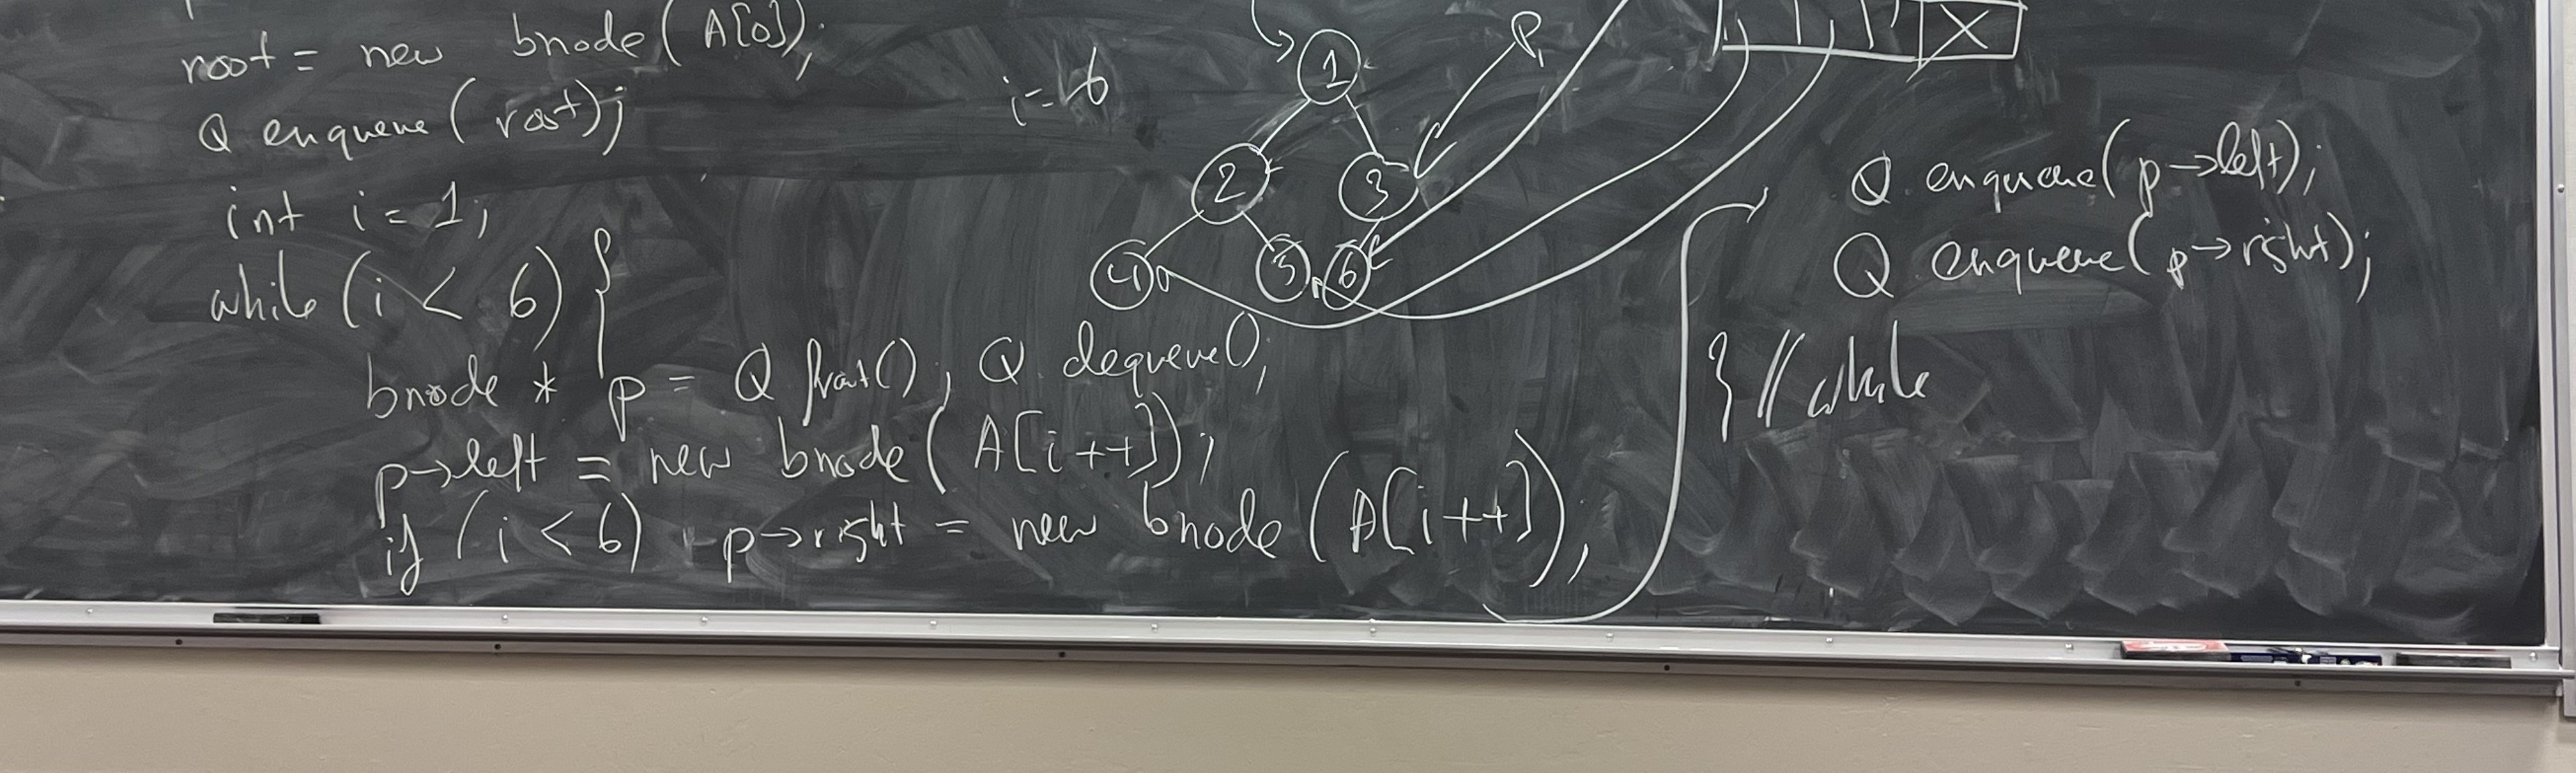 root = new bnode(A[0]);
Q enqueue(root);
int i = 1;
while (i < 6) {
bnode * p = Q front(), Q dequeue(),
p→left = new bnode(A[i++]);
if (i < 6) p→right = new bnode(A[i++]);
i = 6
P
1
2 3
4 5 6
X
Q enqueue(p→left);
Q enqueue(p→right);
} // while